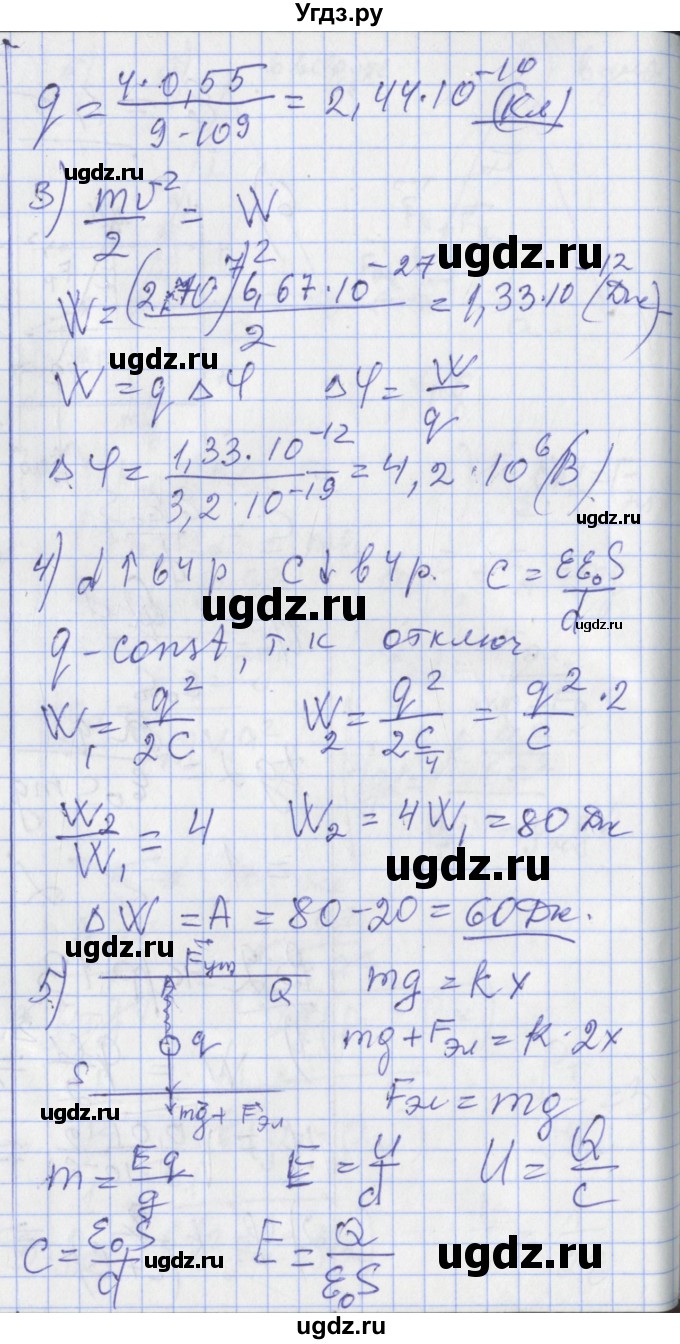 Угдз.ру
q = 4·0,55 / 9·10⁹ = 2,44·10⁻¹⁰ (Кл)
ugdz.ru
3) mv²/2 = W
ugdz.ru
W = (2·10⁷)² 6,67·10⁻²⁷ / 2 = 1,33·10⁻¹² (Дж)
ugdz.ru
W = qΔφ Δφ = W/q
Δφ = 1,33·10⁻¹² / 3,2·10⁻¹⁹ = 4,2·10⁶ (В)
ugdz.ru
4) d↑ в 4 р C↓ в 4 р. C = εε₀S/d
ugdz.ru
q - const, т.к отключ.
W₁ = q²/2C W₂ = q²/(2 C/4) = q²/C ·2
W₂/W₁ = 4 W₂ = 4W₁ = 80 Дж
ugdz.ru
ΔW = A = 80 - 20 = 60 Дж.
5) Fут Q mg = kx
q mg + Fэл = k·2x
S
ugdz.ru
mg + Fэл Fэл = mg
m = Eq/g E = U/d U = Q/C
C = ε₀S/d E = Q/ε₀S
ugdz.ru
ugdz.ru
ugdz.ru